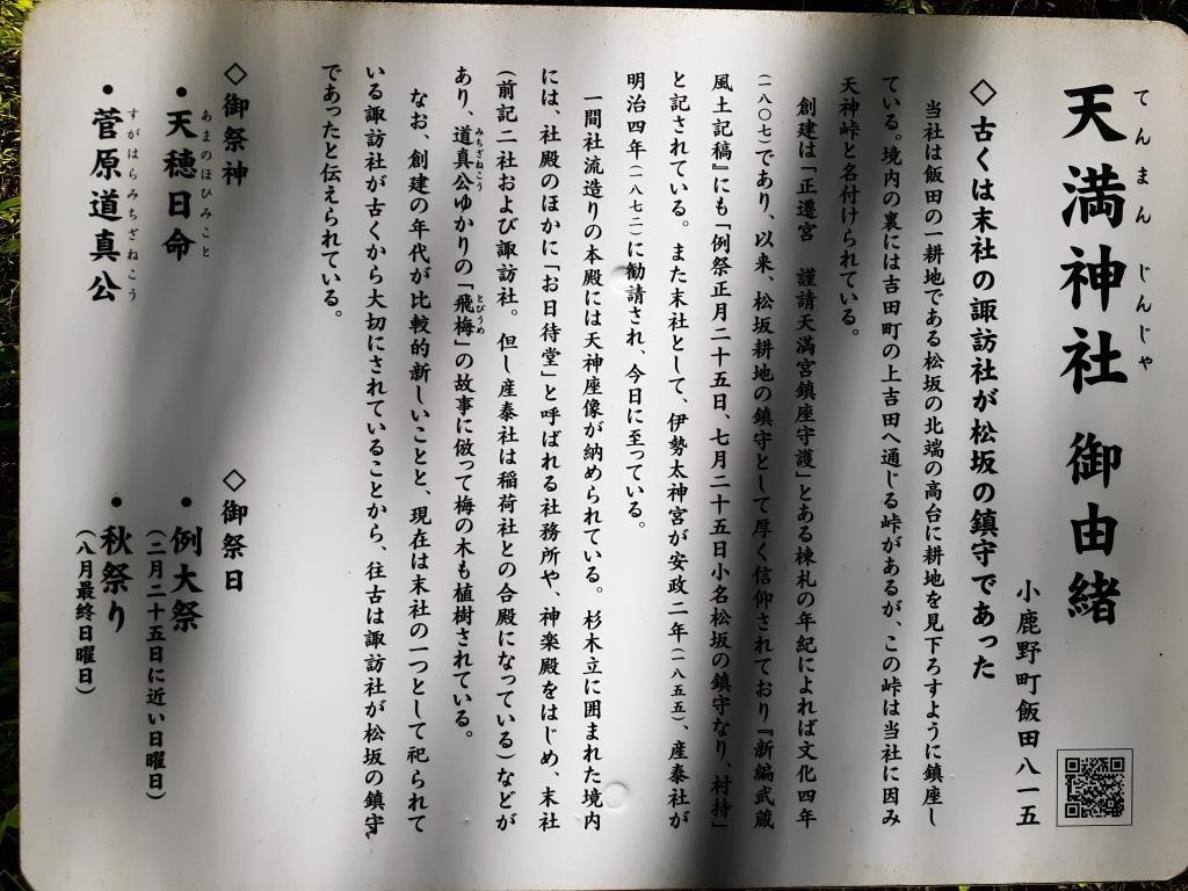 てんまん じんじゃ
天満神社 御由緒
小鹿野町飯田八一五
◇古くは末社の諏訪社が松坂の鎮守であった
当社は飯田の一耕地である松坂の北端の高台に耕地を見下ろすように鎮座し
ている。境内の裏には吉田町の上吉田へ通じる峠があるが、この峠は当社に因み
天神峠と名付けられている。
創建は「正遷宮 謹請天満宮鎮座守護」とある棟札の年紀によれば文化四年
(一八〇七)であり、以来、松坂耕地の鎮守として厚く信仰されており『新編武蔵
風土記稿』にも「例祭正月二十五日、七月二十五日小名松坂の鎮守なり、村持」
と記されている。また末社として、伊勢太神宮が安政二年(一八五五)、産泰社が
明治四年(一八七二)に勧請され、今日に至っている。
一間社流造りの本殿には天神座像が納められている。杉木立に囲まれた境内
には、社殿のほかに「お日待堂」と呼ばれる社務所や、神楽殿をはじめ、末社
(前記二社および諏訪社。但し産泰社は稲荷社との合殿になっている)などが
みちざねこう とびうめ
あり、道真公ゆかりの「飛梅」の故事に倣って梅の木も植樹されている。
なお、創建の年代が比較的新しいことと、現在は末社の一つとして祀られて
いる諏訪社が古くから大切にされていることから、往古は諏訪社が松坂の鎮守
であったと伝えられている。
◇御祭神
あまのほひみこと
・天穂日命
すがはらみちざねこう
・菅原道真公
◇御祭日
・例大祭
(二月二十五日に近い日曜日)
・秋祭り
(八月最終日曜日)